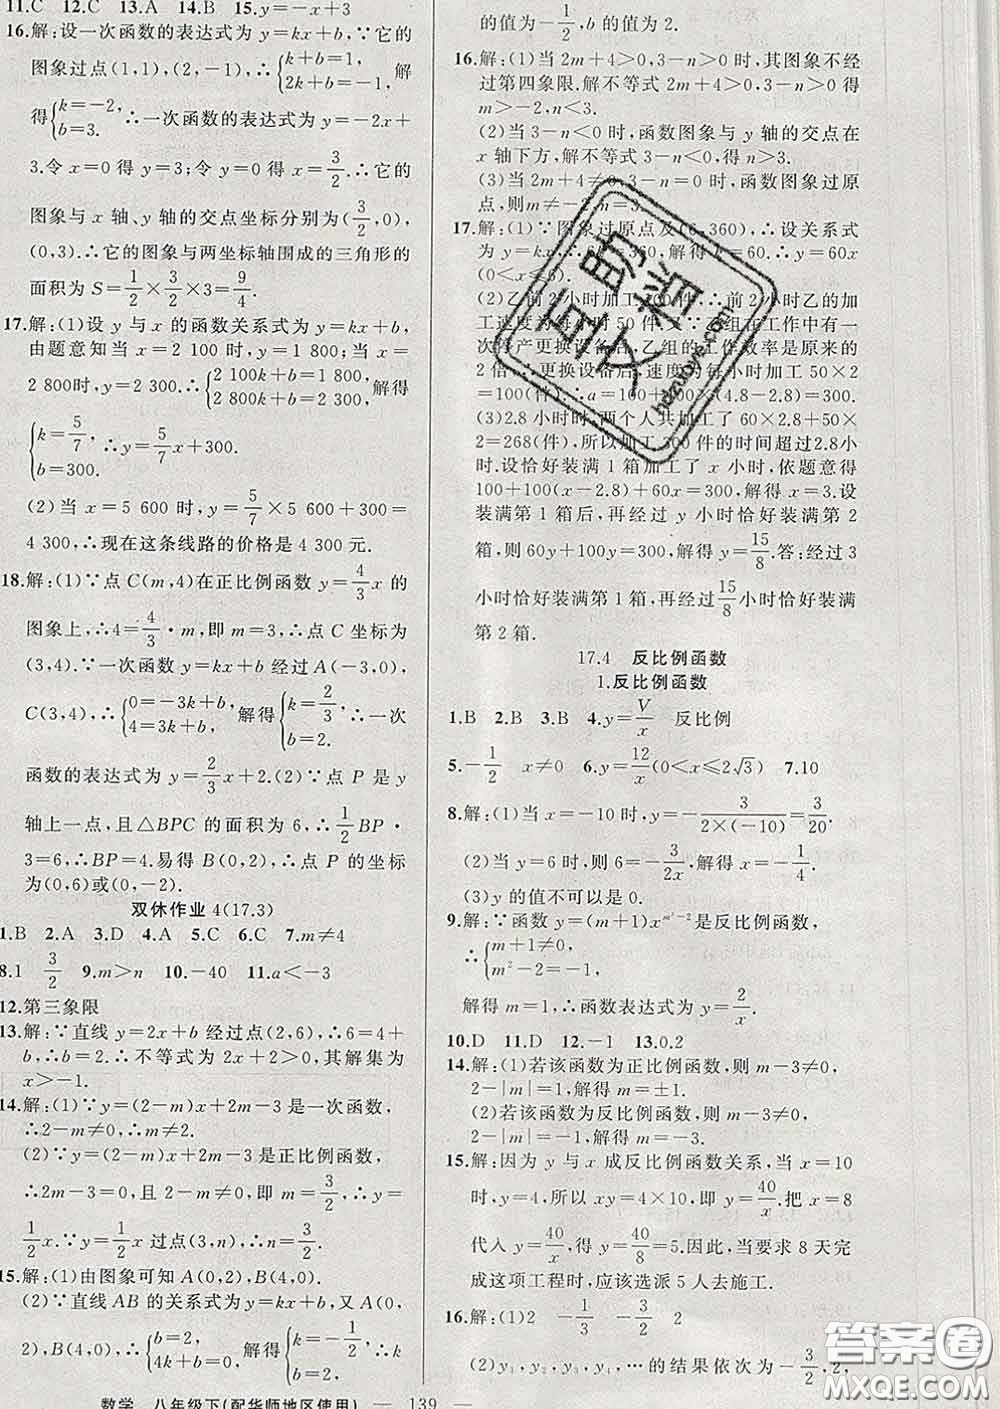 11.C 12.C 13.A 14.B 15.y=-x+3
16.解:设一次函数的表达式为 y=kx+b,∵它的
图象过点(1,1),(2,-1),∴{k+b=1, 2k+b=-1. 解
得{k=-2, b=3. ∴一次函数的表达式为 y=-2x+
3.令 x=0 得 y=3;令 y=0 得 x=3/2.∴它的
图象与 x 轴、y 轴的交点坐标分别为(3/2,0),
(0,3).∴它的图象与两坐标轴围成的三角形的
面积为 S=1/2×3/2×3=9/4.
17.解:(1)设 y 与 x 的函数关系式为 y=kx+b,
由题意知当 x=2 100 时,y=1 800;当 x=
2 800时,y=2 300.∴{2 100k+b=1 800, 2 800k+b=2 300. 解得
{k=5/7, b=300. ∴y=5/7x+300.
(2)当 x=5 600时,y=5/7×5 600+300=
4 300,∴现在这条线路的价格是 4 300 元.
18.解:(1)∵点 C(m,4)在正比例函数 y=4/3x 的
图象上,∴4=4/3·m,即 m=3,∴点 C 坐标为
(3,4).∵一次函数 y=kx+b 经过 A(-3,0),
C(3,4),∴{0=-3k+b, 4=3k+b, 解得{k=2/3, b=2. ∴一次
函数的表达式为 y=2/3x+2.(2)∵点 P 是 y
轴上一点,且△BPC 的面积为 6,∴1/2BP·
3=6,∴BP=4.易得 B(0,2),∴点 P 的坐标
为(0,6)或(0,-2).
双休作业 4(17.3)
1.B 2.A 3.D 4.A 5.C 6.C 7.m≠4
8.1 3/2 9.m>n 10.-40 11.a<-3
12.第三象限
13.解:∵直线 y=2x+b 经过点(2,6),∴6=4+
b,∴b=2.∴不等式为 2x+2>0,其解集为
x>-1.
14.解:(1)∵y=(2-m)x+2m-3是一次函数,
∴2-m≠0,∴m≠2.
(2)∵y=(2-m)x+2m-3是正比例函数,
∴2m-3=0,且 2-m≠0,即 m=3/2,∴y=
1/2x.∵y=1/2x 过点(3,n),∴n=3/2.
15.解:(1)由图象可知 A(0,2),B(4,0).
(2)∵直线 AB 的关系式为 y=kx+b,又 A(0,
2),B(4,0),∴{b=2, 4k+b=0, 解得{k=-1/2, b=2. ∴
数学 八年级下(配华师地区使用) — 139 —
的值为-1/2,b 的值为 2.
16.解:(1)当 2m+4>0,3-n>0时,其图象不经
过第四象限.解不等式 2m+4>0,3-n>0得
m>-2,n<3.
(2)当 3-n<0时,函数图象与 y 轴的交点在
x 轴下方,解不等式 3-n<0,得 n>3.
(3)当 m≠-2,n=3 时,函数图象过原
点,则 m≠-2,n=3.
17.解:(1)∵图象过原点及(6,360),∴设关系式
为 y=kx.∴6k=360,解得 k=60.∴y=60x
(0<x≤6).
(2)乙前 2 小时加工 100 件,∴前 2 小时乙的加
工速度为每小时 50 件.又∵乙组在工作中有一
次停产更换设备后,乙组的工作效率是原来的
2 倍,∴更换设备后,速度为每小时加工 50×2
=100(件),∴a=100+100×(4.8-2.8)=300.
(3)2.8小时时,两个人共加工了 60×2.8+50×
2=268(件),所以加工 300 件的时间超过2.8小
时.设恰好装满 1 箱加工了 x 小时,依题意得
100+100(x-2.8)+60x=300,解得 x=3.设
装满第 1 箱后,再经过 y 小时恰好装满第 2
箱,则 60y+100y=300,解得 y=15/8.答:经过 3
小时恰好装满第 1 箱,再经过15/8小时恰好装满
第 2 箱.
17.4 反比例函数
1.反比例函数
1.B 2.B 3.B 4.y=V/x 反比例
5.-1/2 x≠0 6.y=12/x(0<x≤2√3) 7.10
8.解:(1)当 x=-10时,y=-3/(2×(-10))=3/20.
(2)当 y=6时,则 6=-3/2x,解得 x=-1/4.
(3)y 的值不可以是 0.
9.解:∵函数 y=(m+1)x^{m²-2}是反比例函数,
∴{m+1≠0, m²-2=-1.
解得 m=1,∴函数表达式为 y=2/x.
10.D 11.D 12.-1 13.0.2
14.解:(1)若该函数为正比例函数,则 m-3≠0,
2-|m|=1,解得 m=±1.
(2)若该函数为反比例函数,则 m-3≠0,
2-|m|=-1.解得 m=-3.
15.解:因为 y 与 x 成反比例函数关系,当 x=10
时,y=4,所以 xy=4×10,即 y=40/x.把 x=8
代入 y=40/x,得 y=40/8=5.因此,当要求 8 天完
成这项工程时,应该选派 5 人去施工.
16.解:(1)2 -1/3 -3/2 2
(2)y₁,y₂,y₃,y₄,…的结果依次为-3/2,2,
互助文档
hdzuoye.com
答案圈
MXQE.COM